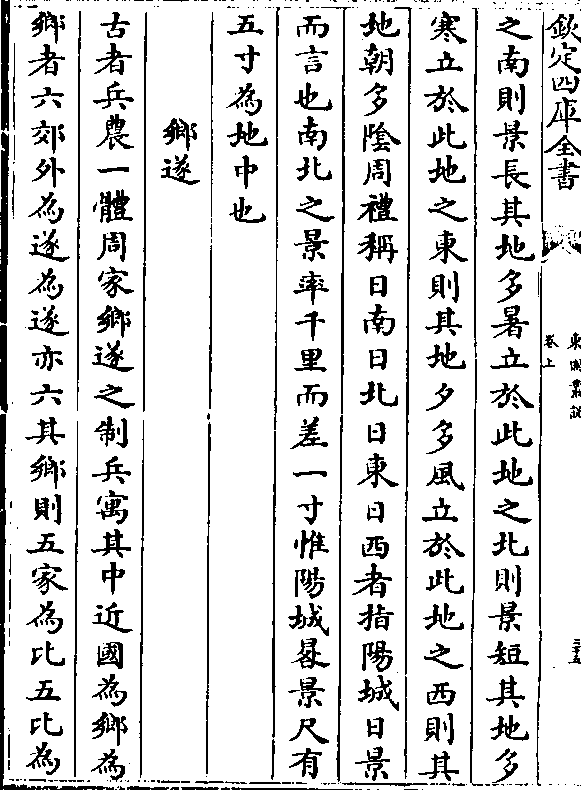 欽定四庫全書
卷上
之南則景長其地多暑立於此地之北則景短其地多
寒立於此地之東則其地夕多風立於此地之西則其
地朝多陰周禮稱日南日北日東日西者指陽城日景
而言也南北之景率千里而差一寸惟陽城晷景尺有
五寸為地中也
鄉遂
古者兵農一體周家鄉遂之制兵寓其中近國為鄉為
鄉者六郊外為遂為遂亦六其鄉則五家為比五比為